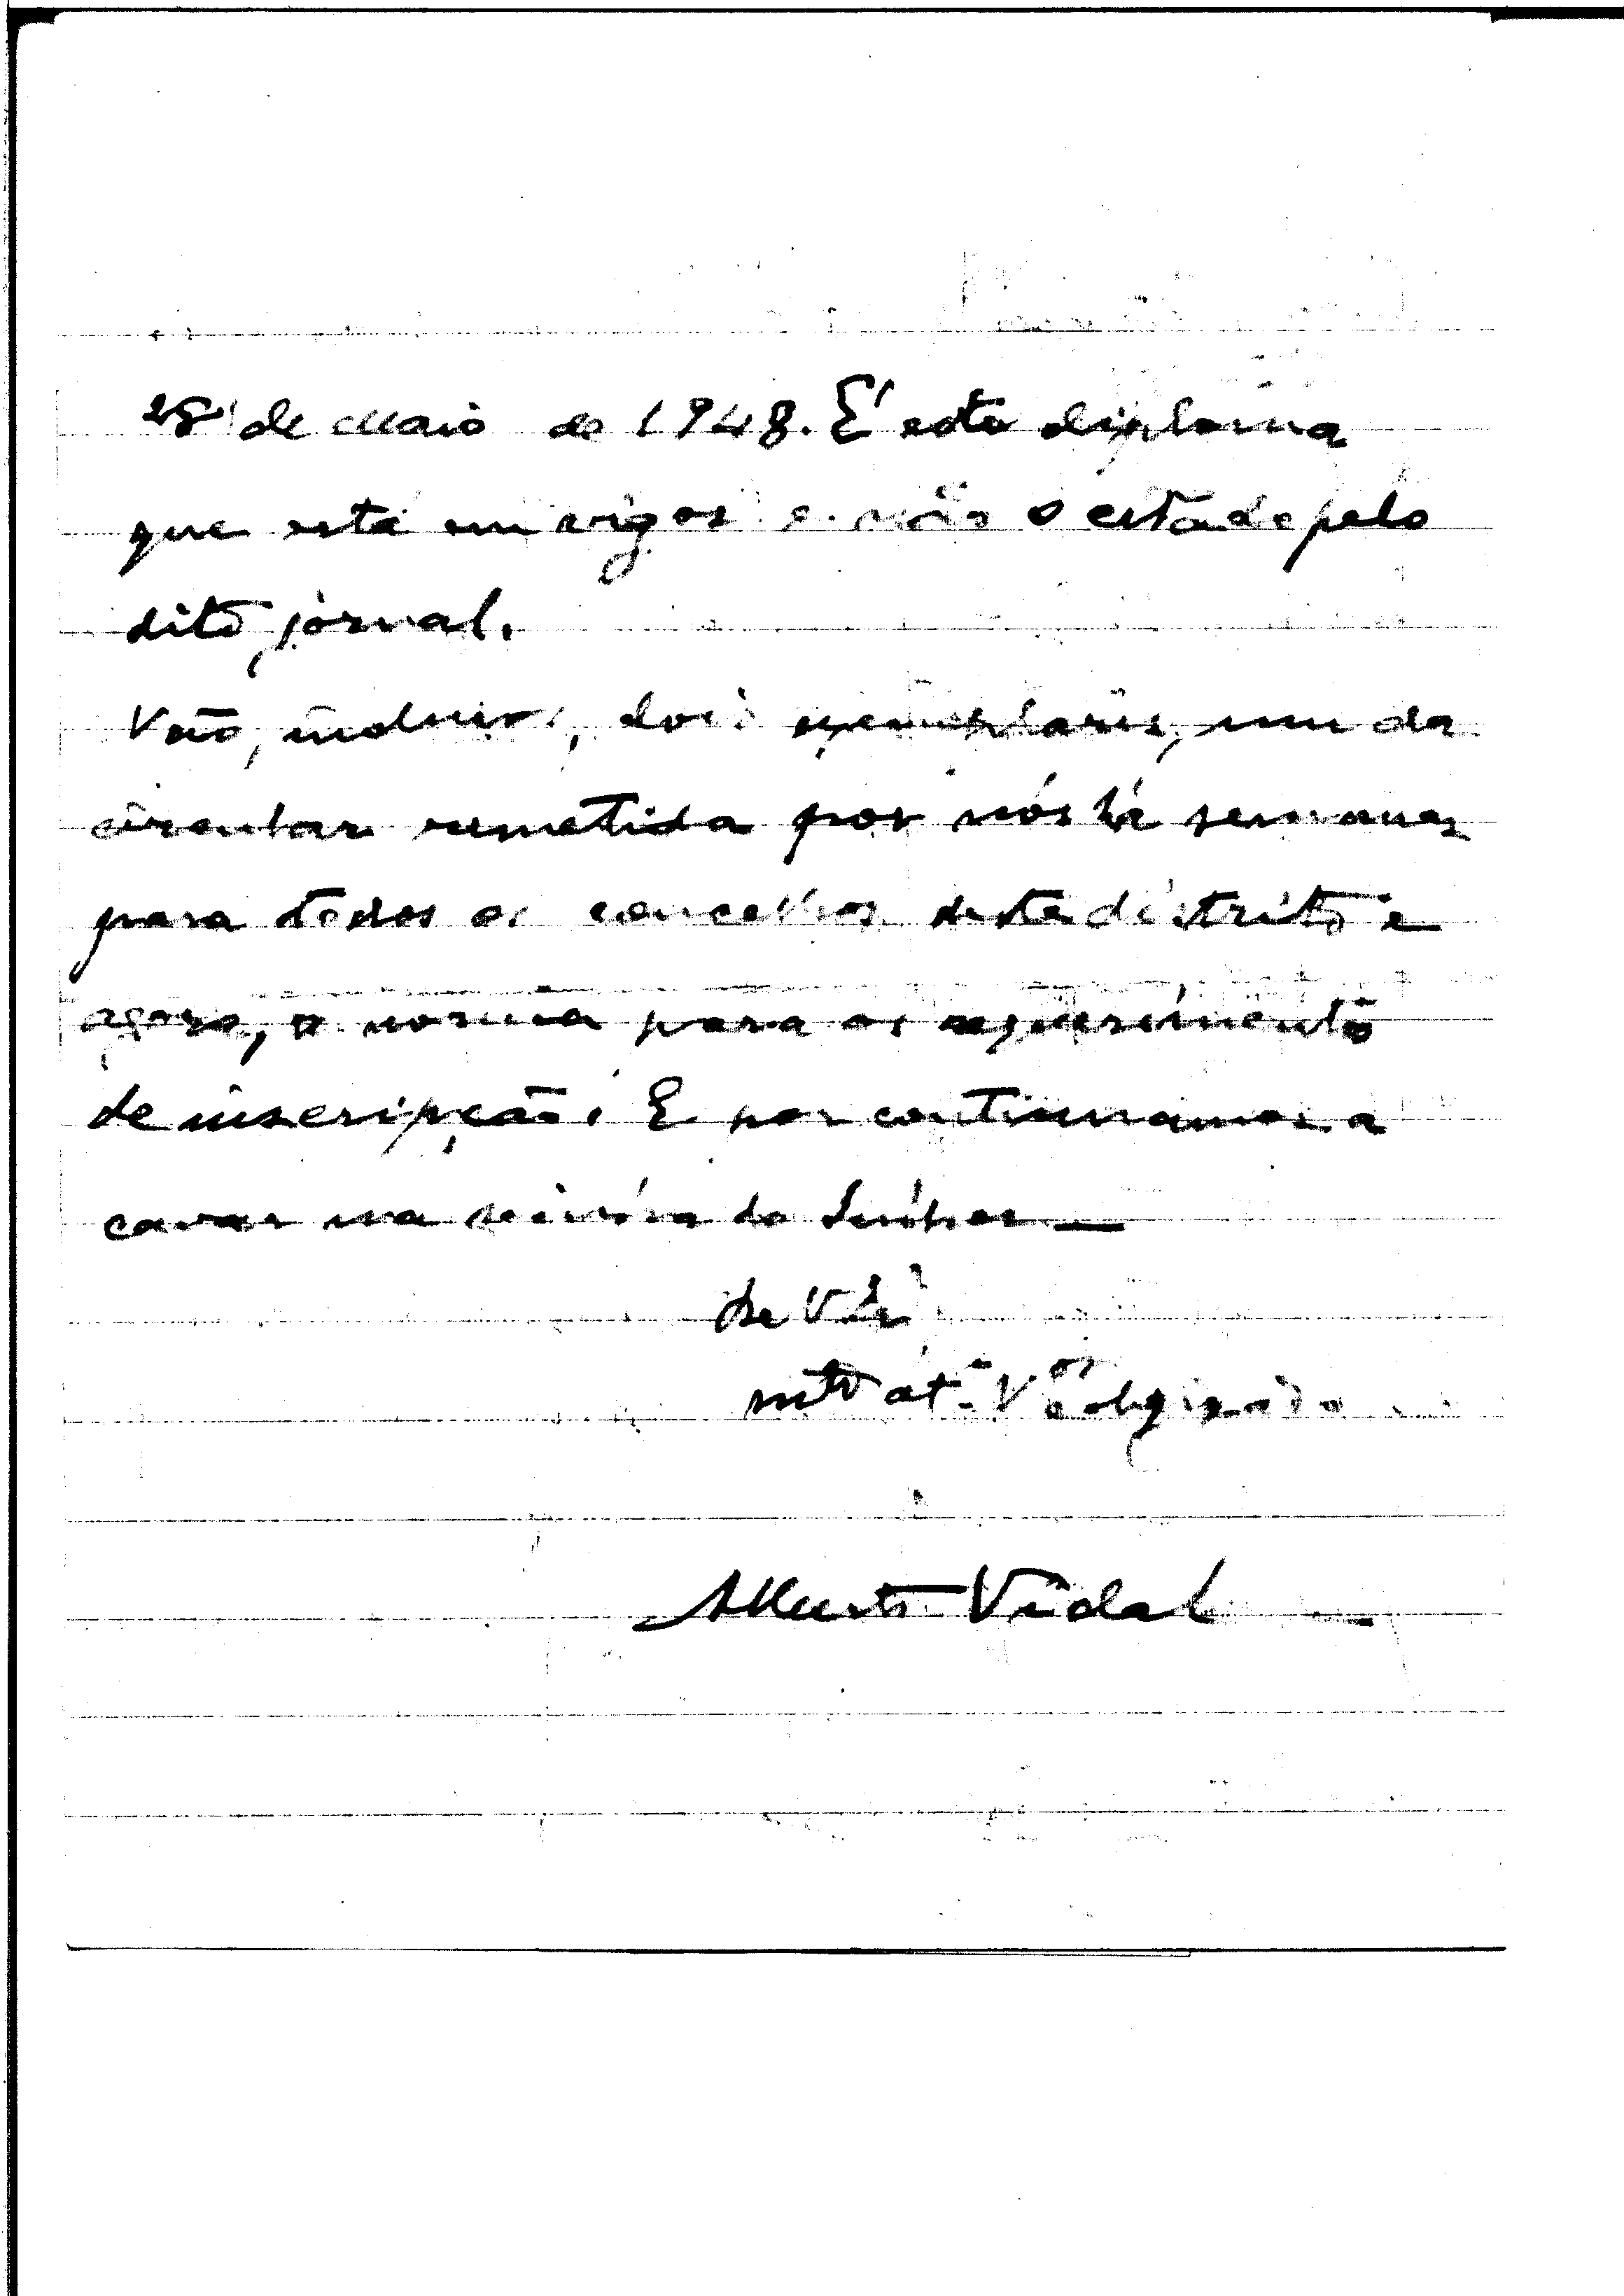 28 de Maio de 1948. É este diploma
que está em vigor e não o estado pelo
dito jornal.
Vão, inclusos, dois exemplares, um da
circular remetida por nós há semanas
para todos os concelhos deste distrito e
agora, a norma para os requerimentos
de inscripção. E por continuamos a
cavar na do Senhor —
de V.
mto at. V. obrigado
Alberto Vidal